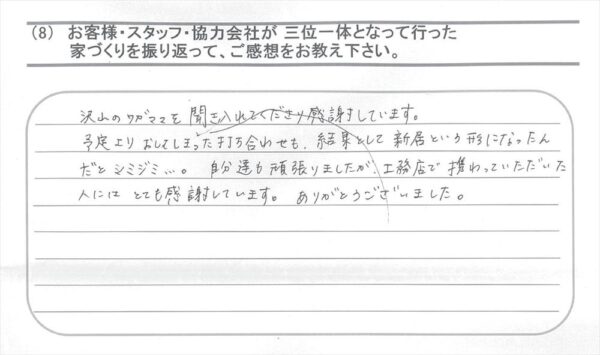 (8) お客様・スタッフ・協力会社が 三位一体となって行った
家づくりを振り返って、ご感想をお教え下さい。
沢山のワガママを聞き入れてくださり感謝しています。
予定よりおしてしまった打ち合わせも、結果として新居という形になったん
だとシミジミ…。 自分達も頑張りましたが、工務店で携わっていただいた
人にはとても感謝しています。ありがとうございました。